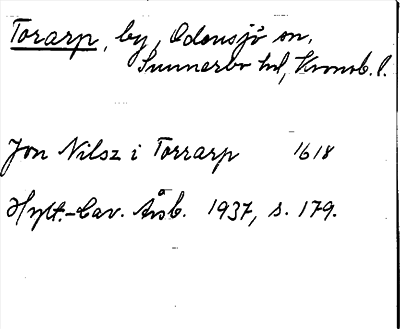 Torarp, by, Odensjö sn,
Sunnerbo hd, Kronob. l.
Jon Nilsz i Torrarp 1618
Hylt.-Cav. Årsb. 1937, s. 179.